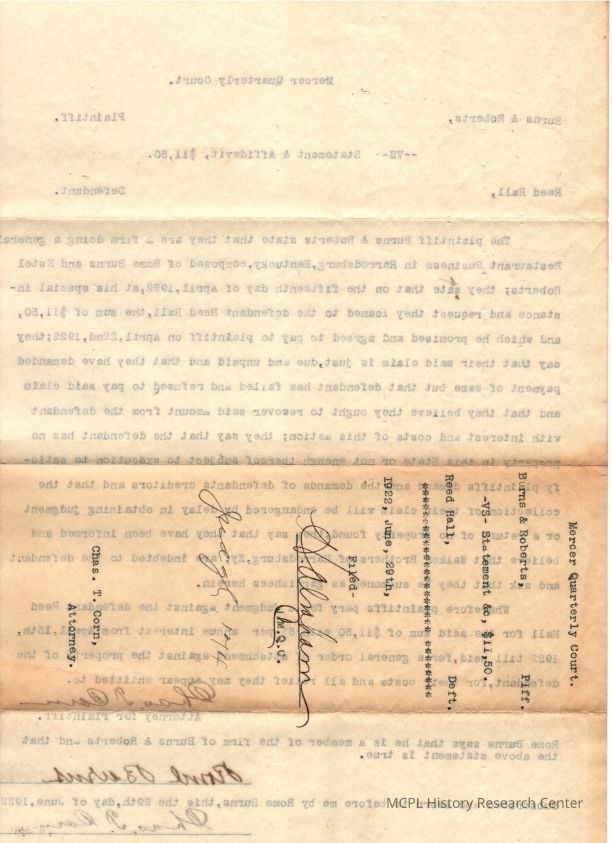 Mercer Quarterly Court.
Burns & Roberts, Plaintiff.
--VS-- Statement & Affidavit, $11,50.
Reed Hall, Defendant.
The plaintiff Burns & Roberts state that they are a firm doing a general
Restaurant Business in Harrodsburg,Kentucky,composed of Rome Burns and Estel
Roberts; they sate that on the fifteenth day of april,1922,at his special in-
stance and request they loaned to the defendant Reed Hall,the sum of $11,50,
and which he promised and agreed to pay to plaintiff on april,22nd,1922;they
say that their said claim is just,due and unpaid and that they have demanded
payment of same but that defendant has failed and refused to pay said claim
and that they believe they ought to recover said amount from the defendant
with interest and costs of this action; they say that the defendant has no
property in this State or not enough thereof subject to execution to satis-
fy plaintiffs demand the demands of defendants creditors and that the
collection of their claim will be endangered by delay in obtaining judgment
or a return of no property found, they say that they have been informed and
believe that Walker Brothers of Harrodsburg,Ky, indebted to the defendant
and ask that they be summoned as garnishees herein.
Wherefore plaintiffs pary for judgment against the defendant Reed
Hall for the said sum of $11,50 per annum interest from 15th,
1922 till paid,for a general order of attachment against the property of the
defendant,for their costs and all relief they may appear entitled to.
Chas T Corn
Attorney for Plaintiff.
Rome Burns says that he is a member of the firm of Burns & Roberts and that
the above statement is true.
Rome Burns
before me by Rome Burns,this the 29th,day of June,1922
Chas. T. Corn
Mercer Quarterly Court.
Burns & Roberts, Plff.
-VS- Statement &c, $11,50.
Reed Hall, Deft.
*********************
1922, June, 29th,
Filed-
M.Q.C.
Chas. T. Corn,
Attorney.
MCPL History Research Center